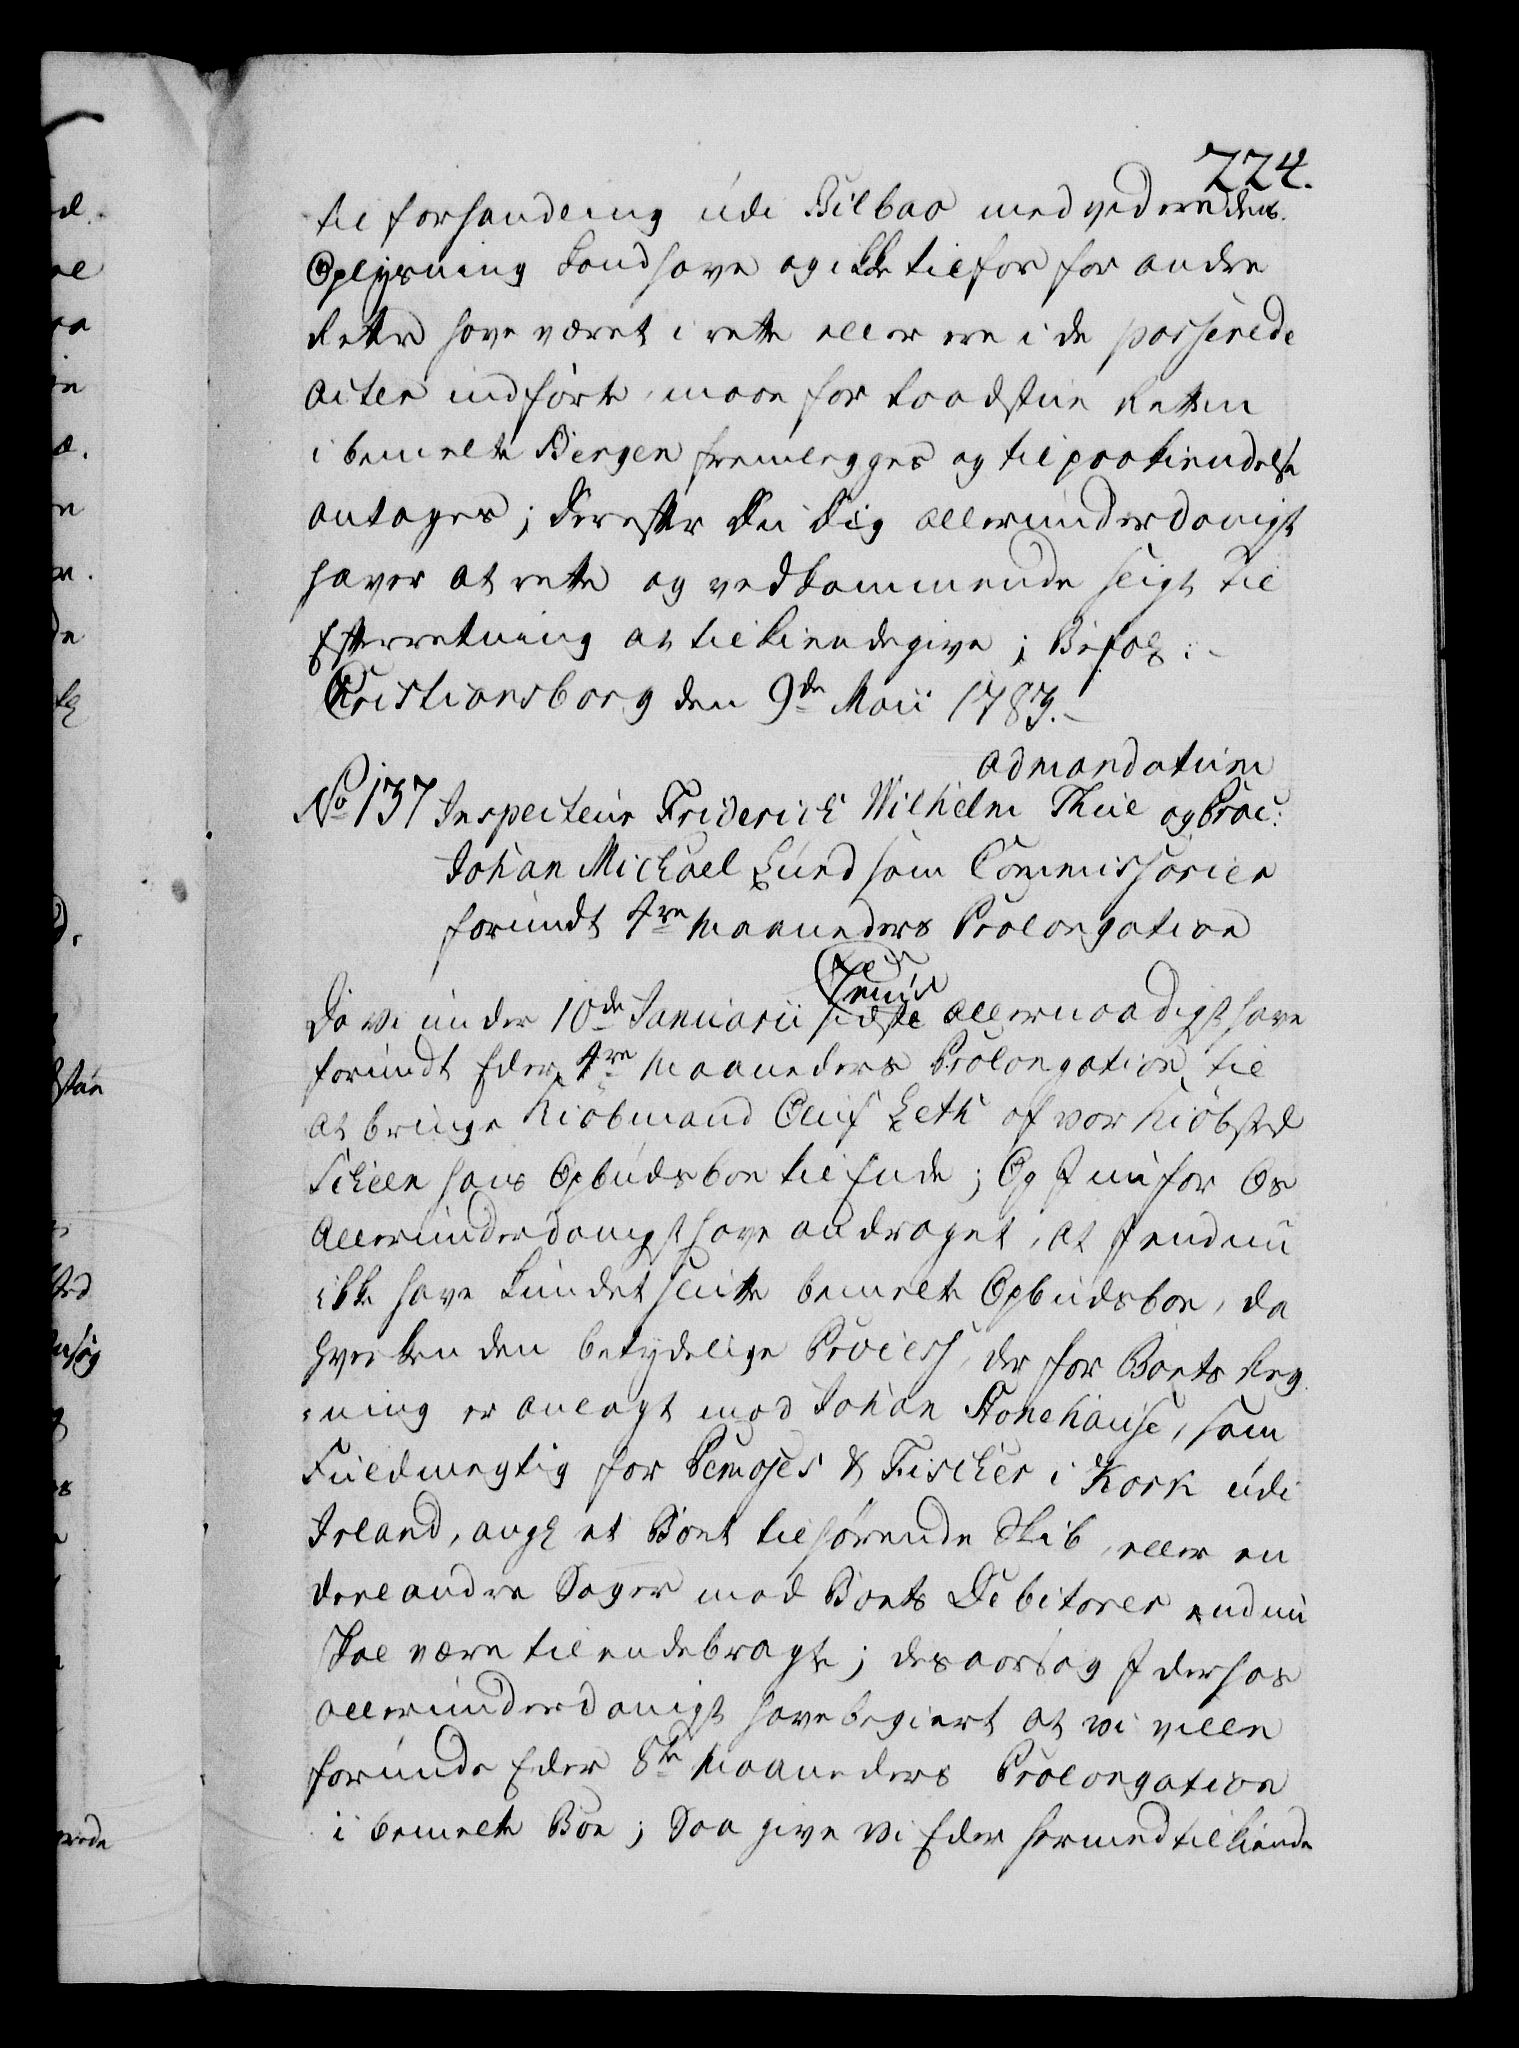 224.
til forhandling udi Bilbao med vederendes
Oplysning kand have og ikke tilfor for andre
Retter have været i rette eller ere i de passerede
Acter indførte, maae for Raadstue Retten
i bemelte Bergen fremlegges og til paakiendelse
antages; Derefter Du Dig allerunderdanigst
haver at rette og vedkommende sligt til
Efterretning at tilkiendegive; Befal:
Christiansborg den 9de Maii 1783.
ad mandatum
No 137 Inspecteur Friderich Wilhelm Thue og Proc:
Johan Michael Lund som Commissarier
forundt 4re Maaneders Prolongation
Da vi under 10de Januarii sidste allernaadigst have
forundt Eder 4re Maaneders Prolongation til
at bringe Kiöbmand Oluf Leth af vor Kiöbsted
Scheen hans Opbudsboe til Ende; Og I nu for Os
allerunderdanigst have andraget, at I endnu
ikke have kundet slutte bemelte Opbudsboe, da
hverken den betydelige Process, der for Boets Reg
ning er anlagt mod Johan Stonehause, som
Fuldmegtig for Pemoses & Fischer i Kork udi
Irland, angl et Boet tilhørende Skib, eller en
deel andre Sager mod Boets Debitorer endnu
skal være tilendebragte; desaarsag I derhos
allerunderdanigst have begiert at vi ville
forunde Eder 8te Maaneders Prolongation
i bemelte Boe; Saa give vi Eder hermed tilkiende